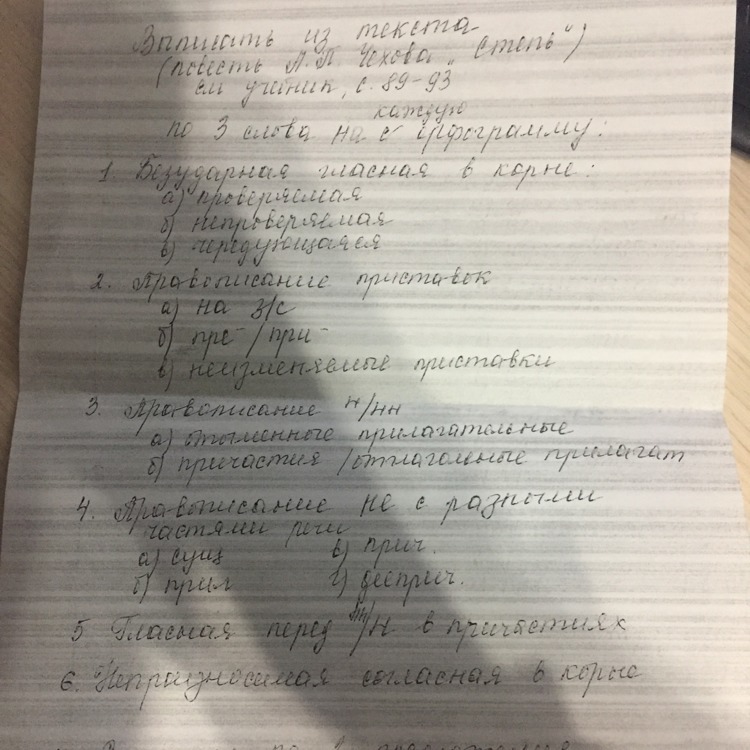 Выписать из текста
(повесть А.П. Чехова „Степь“)
см учебник, с. 89-93
каждую
по 3 слова на орфограмму:
1. Безударная гласная в корне:
а) проверяемая
б) непроверяемая
в) чередующаяся
2. Правописание приставок
а) на з/с
б) пре-/при-
в) неизменяемые приставки
3. Правописание н/нн
а) отыменные прилагательные
б) причастия /отглагольные прилагат
4. Правописание не с разными
частями речи
а) сущ в) прич.
б) прил г) дееприч.
5 Гласная перед нн/н в причастиях
6. Непроизносимая согласная в корне